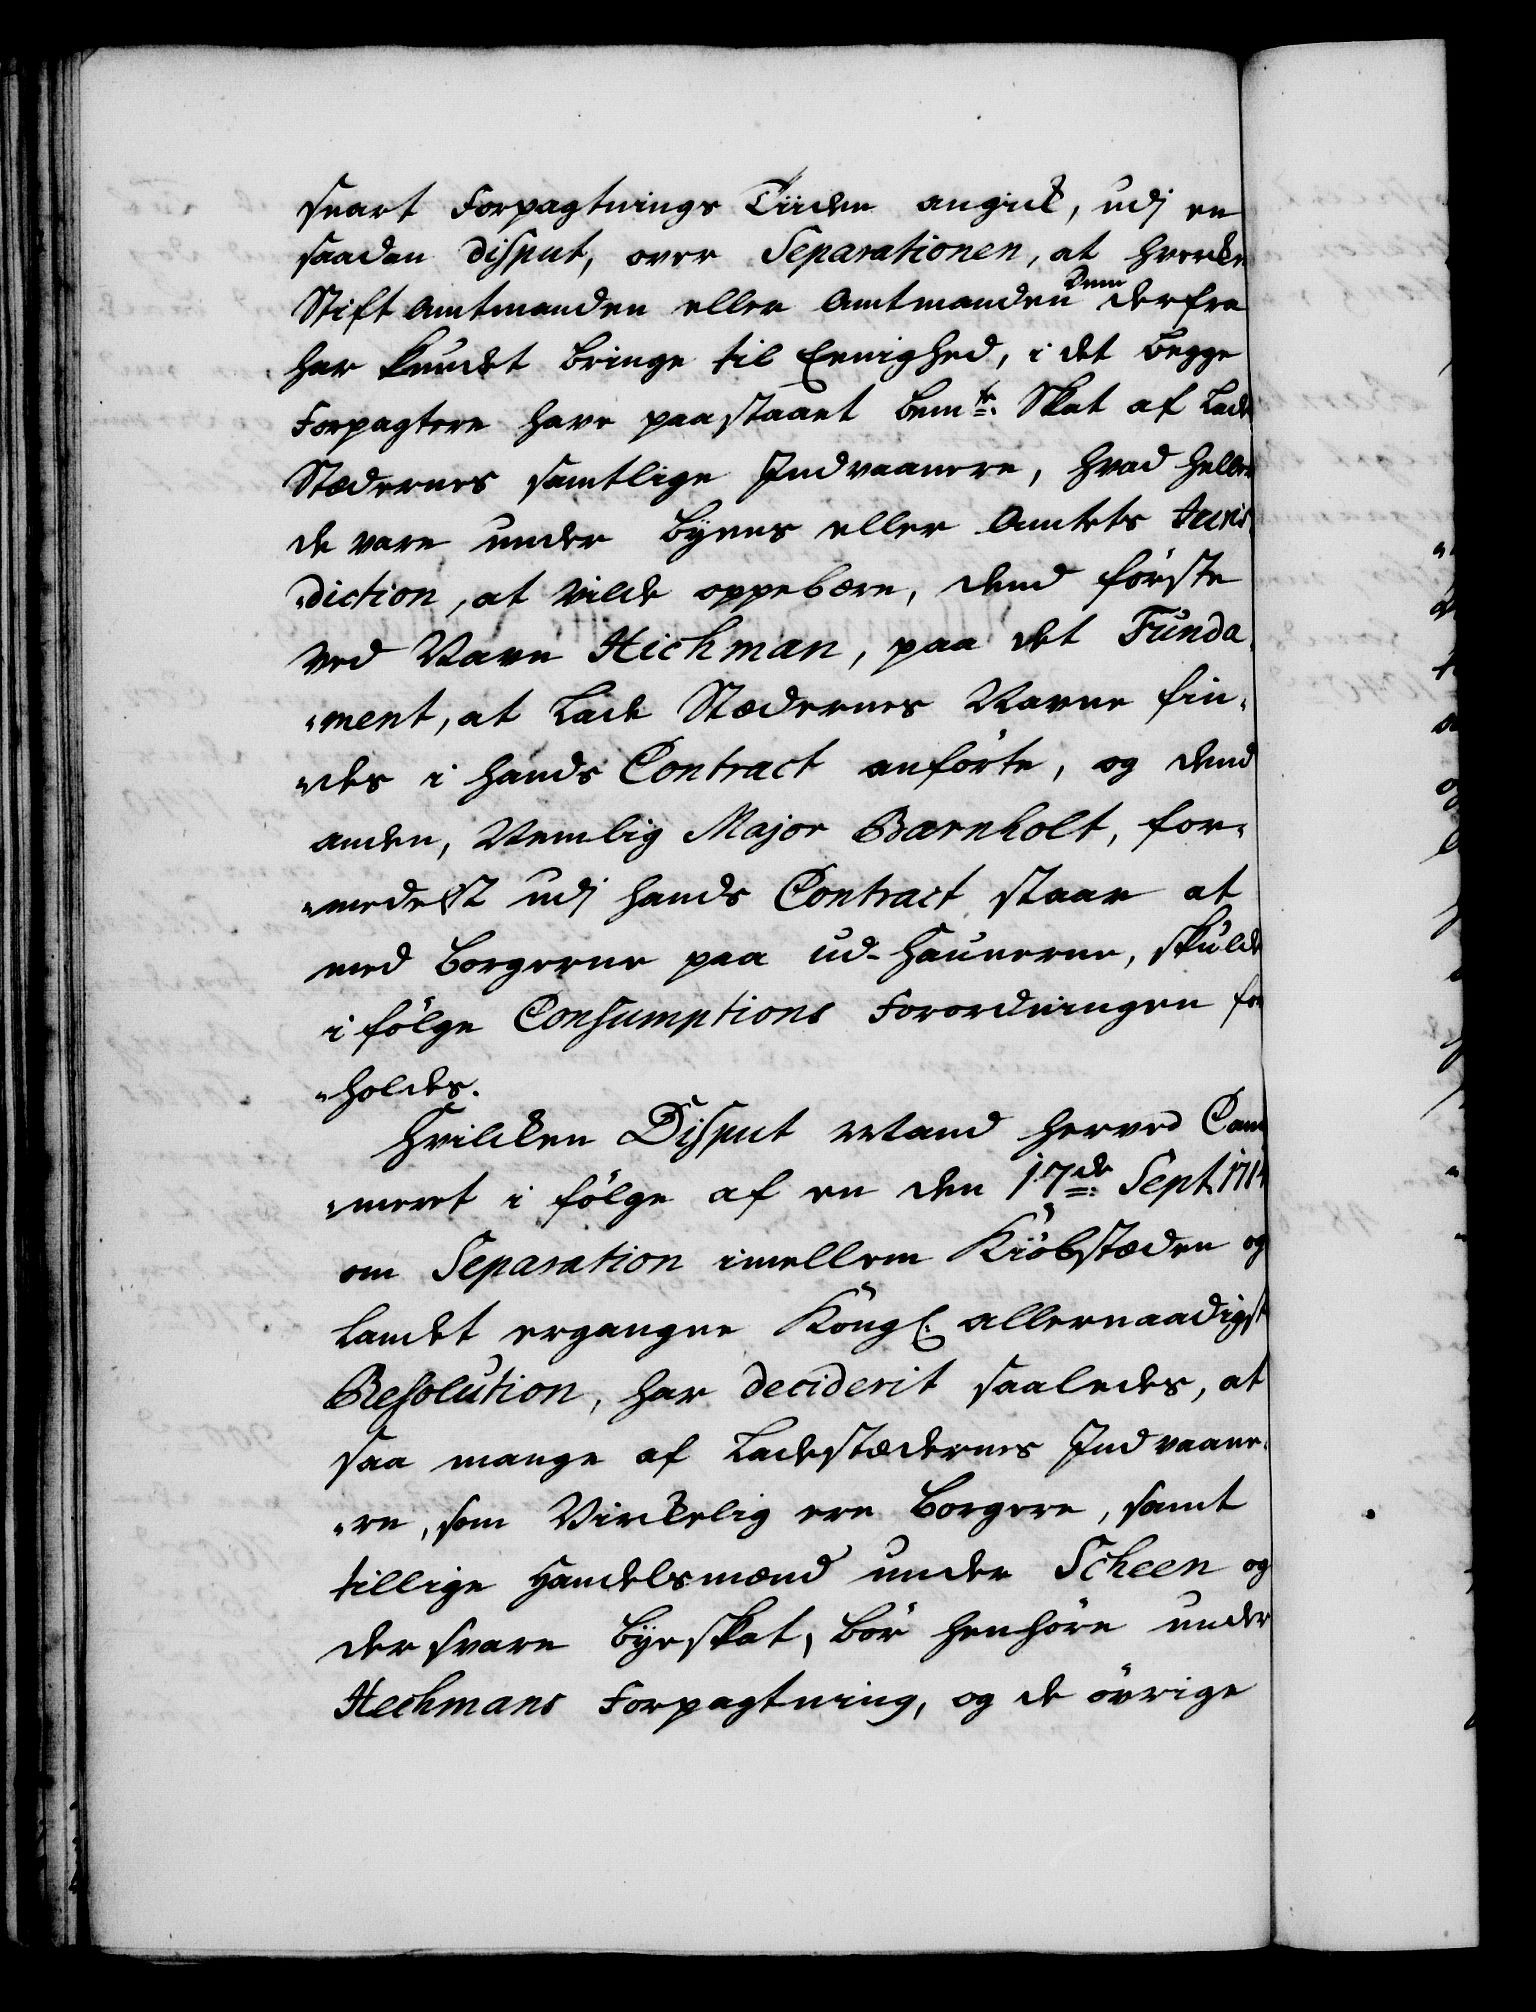 snart Forpagtnings Tiiden angick, udj en
saadan disput, over Separationen, at hverken
Stift Amtmanden eller Amtmanden Dem derfra
har kundet bringe til Eenighed, i det begge
Forpagtere have paastaaet bemte: Skat af Lade
Stædernes samtlige Indvaanere, hvad heller
de vare under Byens eller Amtets Juris
diction, at vilde oppebære, dend förste
ved Navn Hichman, paa det Funda
"ment, at Lade Stædernes Navne fin,
"des i hands Contract anförte, og dend
anden, Nemlig Major Bærnholt, for,
"medelst udj hands Contract staar at
med borgerne paa ud-hauerne, skulde
i fölge Consumptions Forordningen for
"holdes.
Hvilcken Disput Mand herved Cam
"meret i fölge af en den 17de: Sept. 1714
om Separation imellem Kiöbstæden og
Landet ergangne Köngl. allernaadigst
Resolution, har deciderit saaledes, at
saa mange af Ladestædernes Indvaane,
"re, som Virckelig ere borgere, samt
tillige Handelsmænd under Scheen og
der svare Byeskat, bör henhöre under
Hechmans Forpagtning, og de övrige